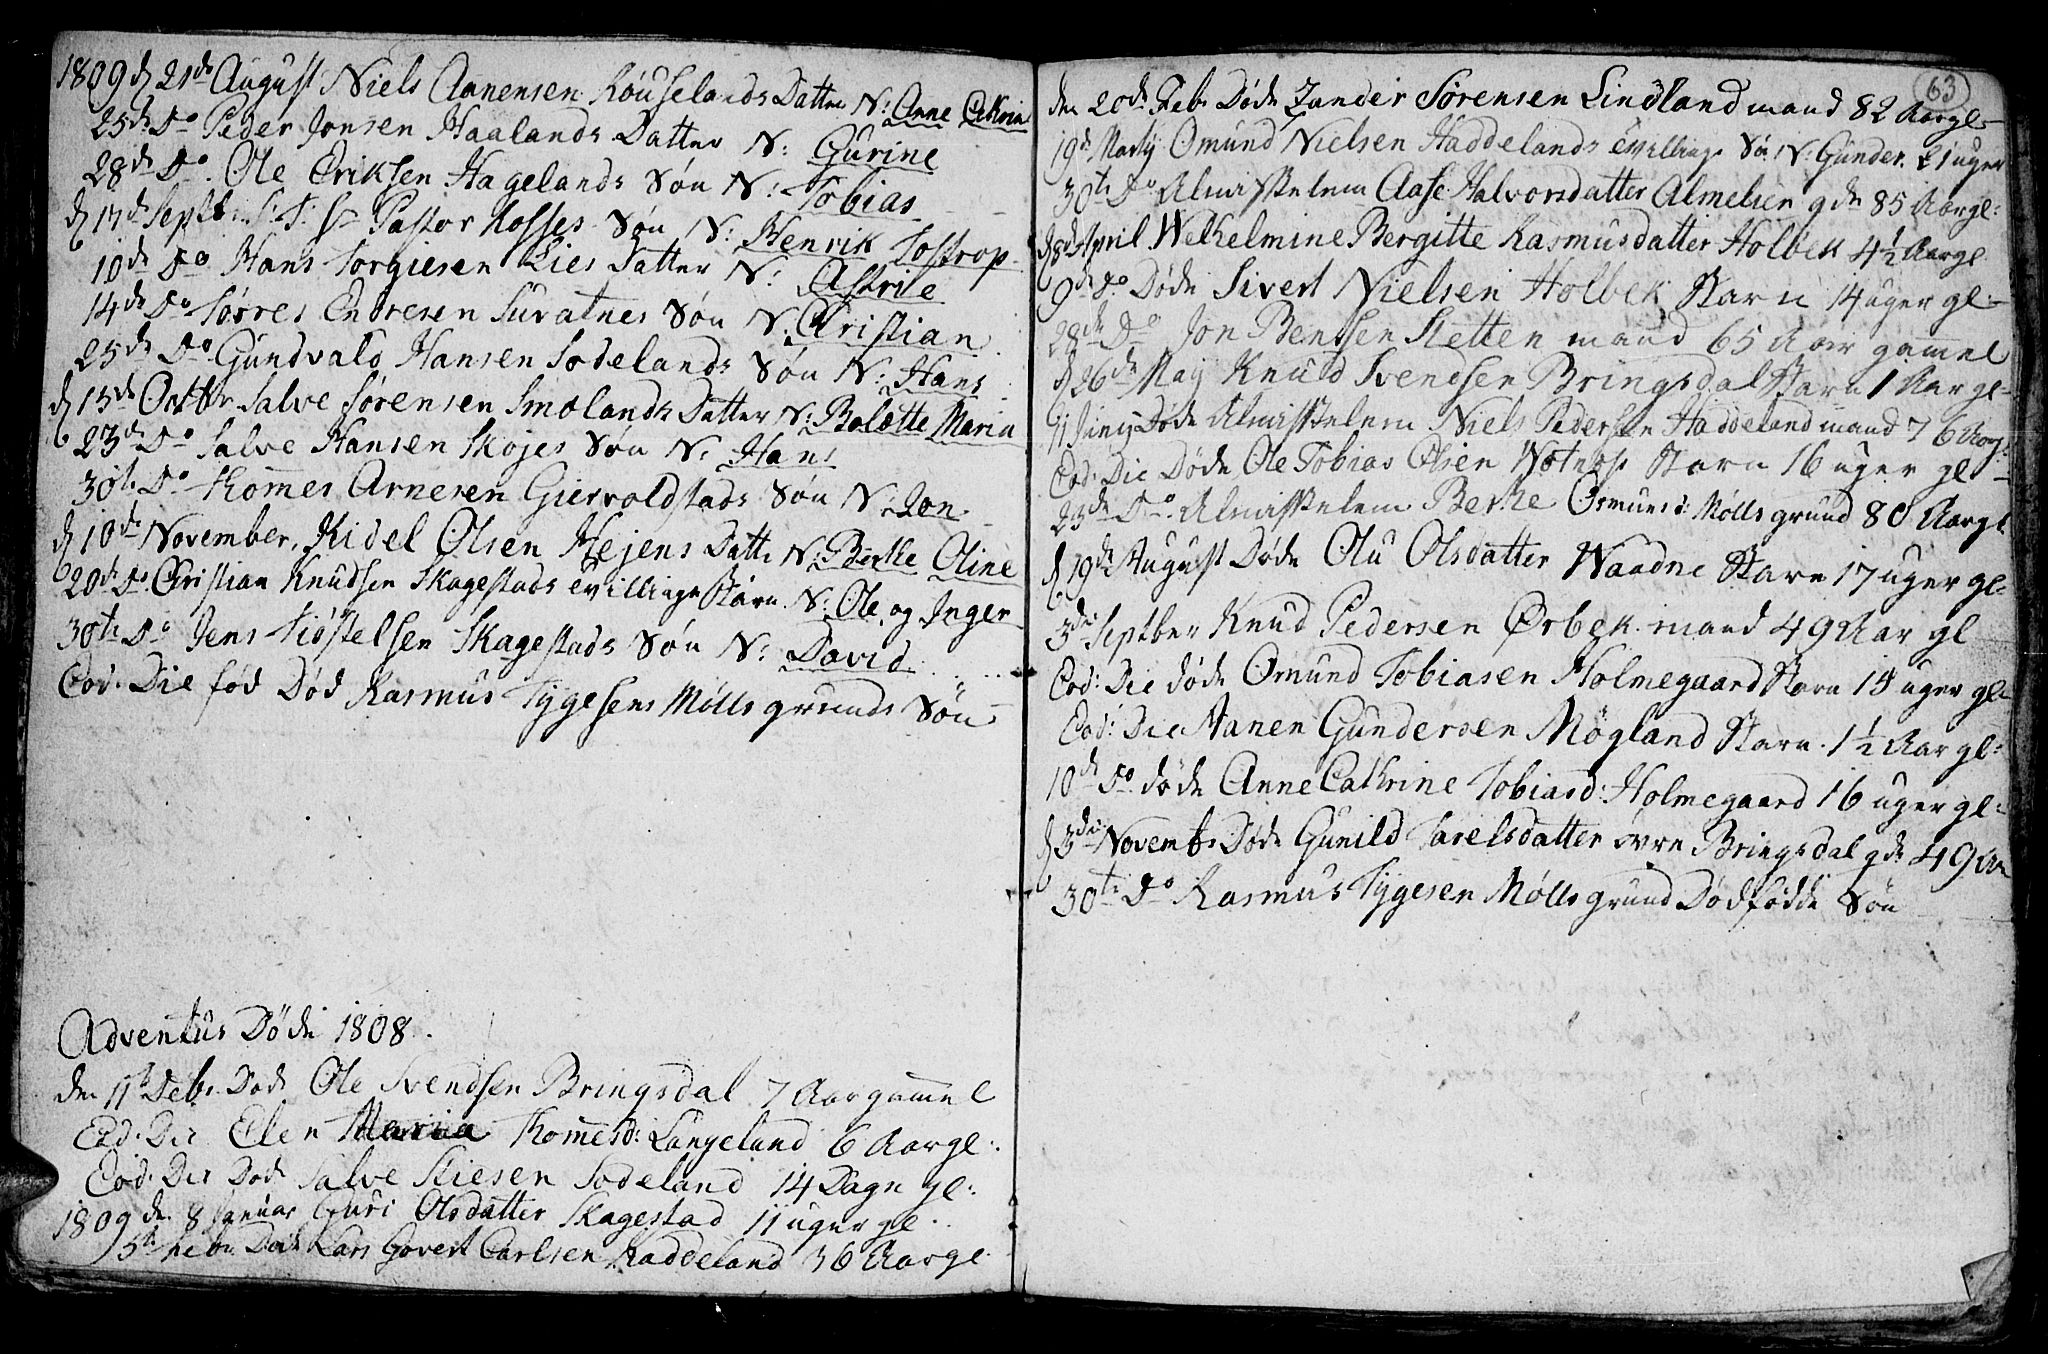 1809 d 21de August Niels Aanensen Røuselands Datter N: Anne Cathrin
25de Do Peder Jonsen Haalands Datter N: Gurine
28de Do. Ole Eriksen Hagelands Søn N: Tobias
d 17de Septbr. S. T. Hr Pastor Kosses Søn N: Henrik Tostrop
10de Do Hans Torgiesen Lies Datter N: Astrile
14de Do Torres Endresen Suvatnes Søn N: Christian
25de Do Gundvald Hansen Sodelands Søn N: Hans
d 15de Octbr Salve Sørensen Smolands Datter N: Bolette Maria
23de Do Salve Hansen Skøjes Søn N: Hans
30te Do Thomes Arnesen Giervoldstads Søn N: Jon
d 10de November. Kidel Olsen Hejens Datter N: Berthe Oline
20de Do. Christian Knudsen Skagestads tvillinge Børn. N: Ole og Inger
30te Do Jens Kiøstelsen Skagestads Søn N: David
Eod: Die fød Død Rasmus Tygesens Møllsgrunds Søn
Adventus Døde 1808.
den 11te Debr. Døde Ole Svendsen Bringsdal 7 Aar gammel
Eod: Die Elen Maria Thomesd: Langeland 6 Aar gl:
Eod: Die Døde Salve Stiesen Sodeland 14 Dage gl:
1809 den 8 Januar Guri Olsdatter Skagestad 11 uger gl.
5te Febr. Døde Lars Govert Carlsen Haddeland 36 Aar gl
63
den 20de Feb. Døde Zander Sørensen Lindland mand 82 Aar gl
19de Martij Omund Nielsen Haddelands tvillinge Søn N: Gunder. 21 uger
30te Do Almisselem Aase Halvorsdatter Almelien gde 85 Aar gl:
d 8de April Welhelmine Bergitte Rasmusdatter Holbek 4 1/2 Aar gl
9de Do. Døde Sivert Nielsen Holbek Barn 14 uger gl:
28de Do Jon Bentsen Sletten mand 65 Aar gammel
d 26de May Knud Svendsen Bringsdal Barn 1 Aar gl
11 Junij Døde Almisselem Niels Pedersen Haddeland mand 76 Aar gl
Eod: Die Døde Ole Tobias Olsen Barn 16 uger gl
23de Do. Almisselem Berthe Ormunsd: Møllsgrund 80 Aar gl.
d 19de August Døde Olu Olsdatter Waadne Barn 17 uger gl:
3die Septber Knud Pedersen Ørbek. mand 49 Aar gl
Eod: Die døde Omund Tobiasen Holmegaard Barn 15 uger gl:
Eod: Die Aanen Gundersen Møgland Barn. 1 1/2 Aar gl:
10de Do. døde Anne Cathrine Tobiasd: Holmegaard 16 uger gl:
d 3die Novembr Døde Gunild Tarelsdatter øvre Bringsdal gde 49 Aar
30te Do Rasmus Tygesen Møllsgrund Dødfødde Søn